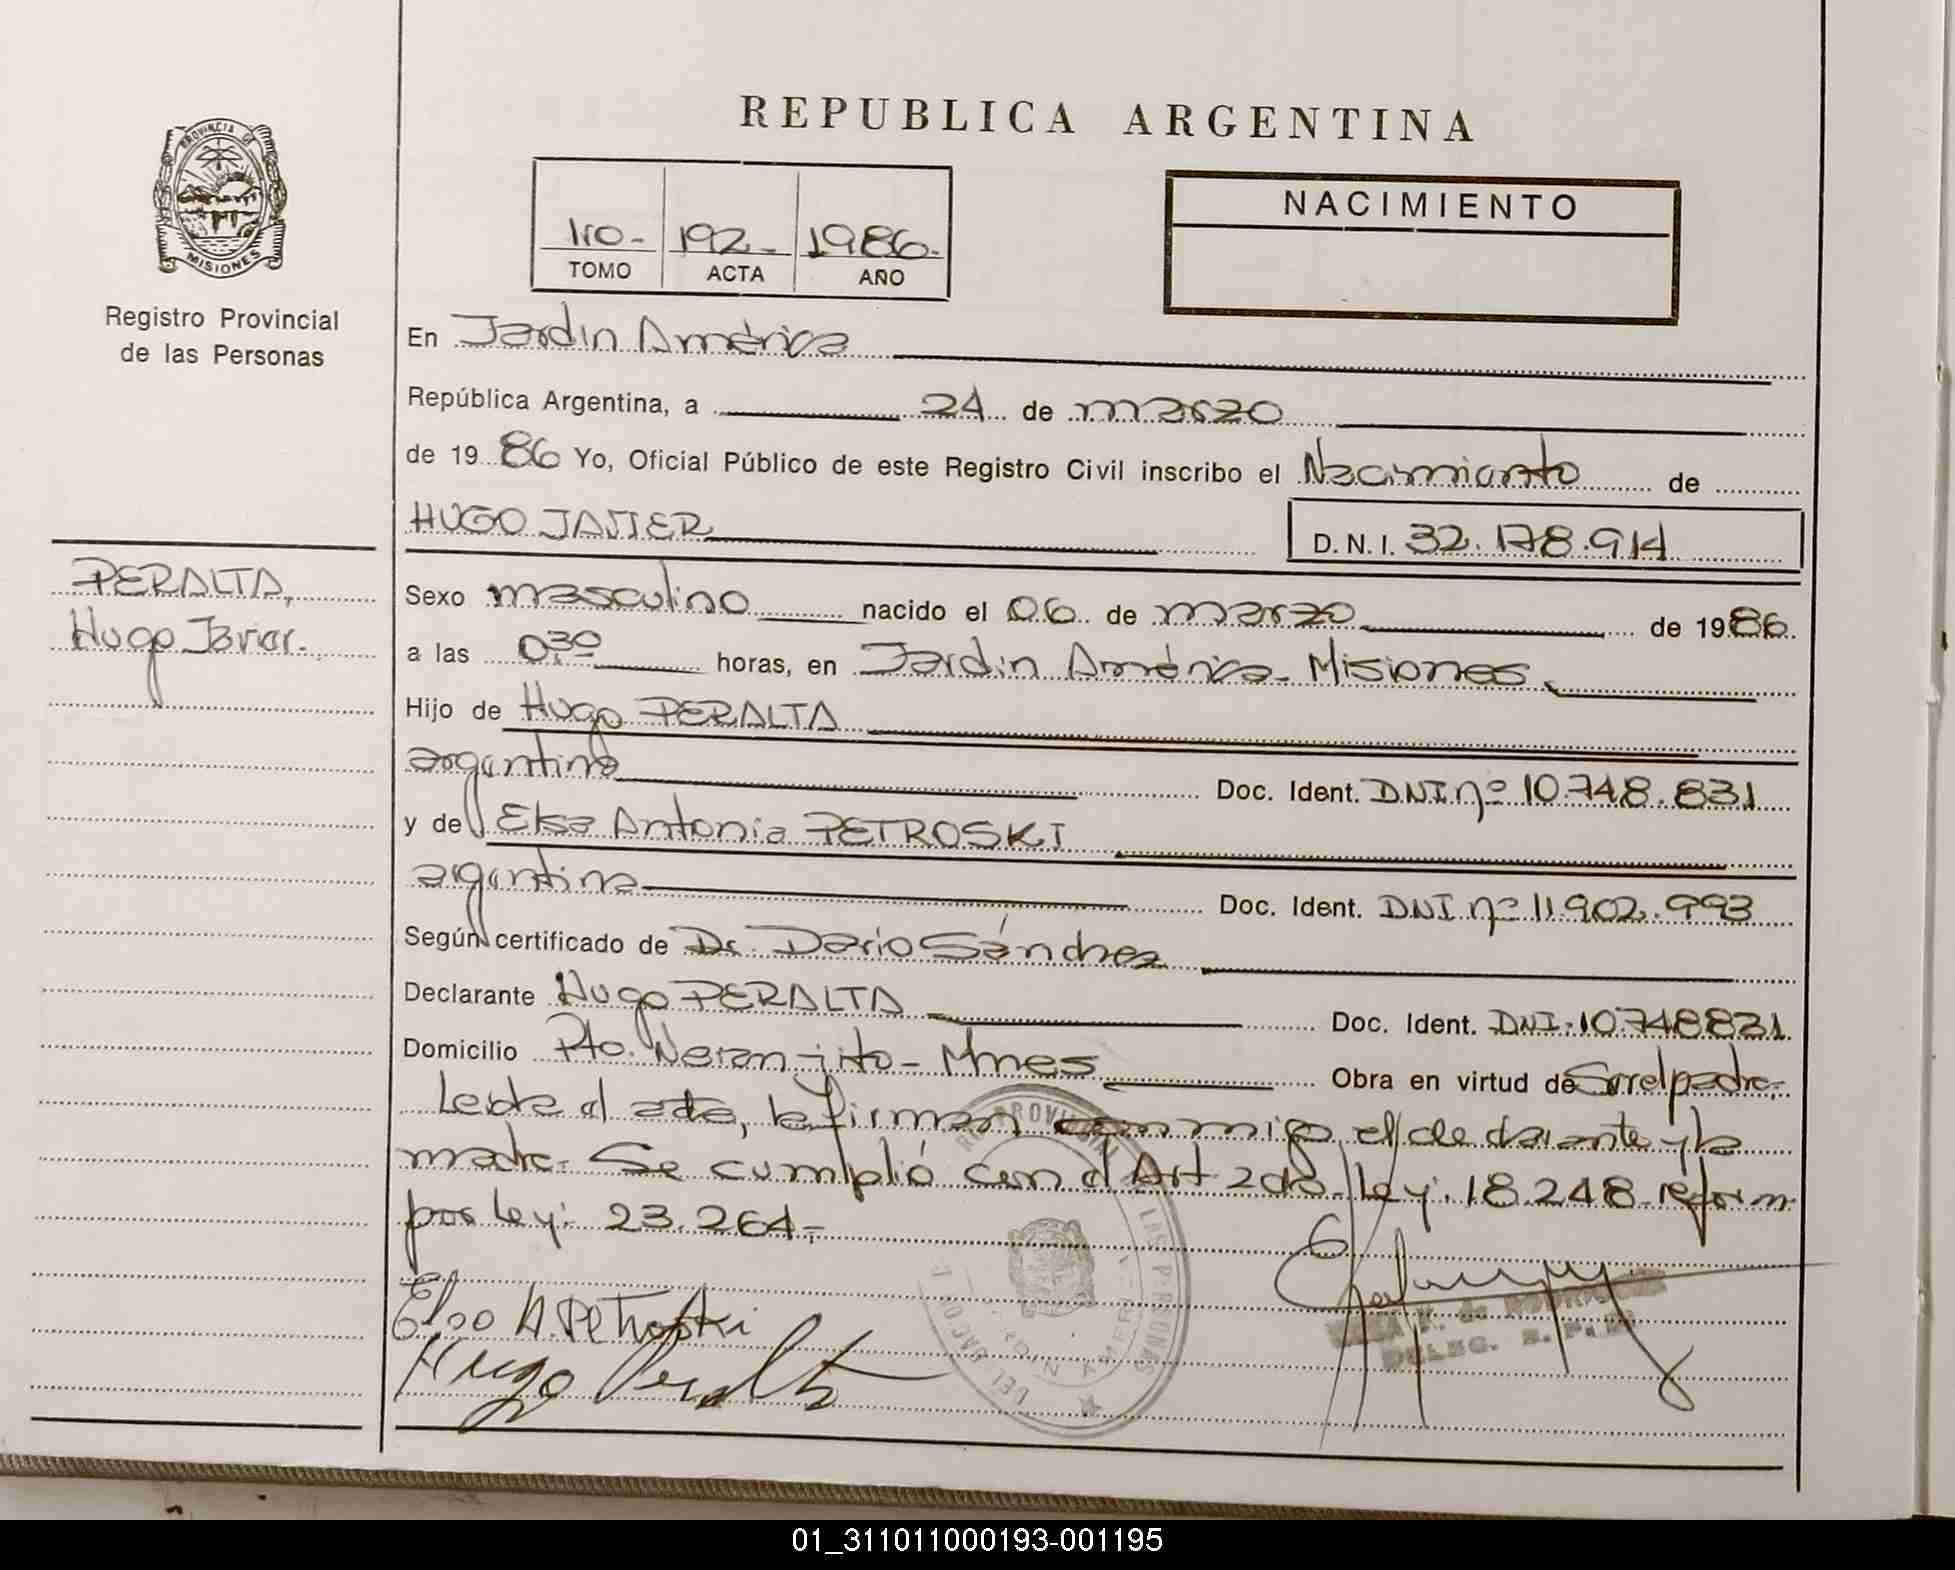 REPUBLICA ARGENTINA
PROVINCIA DE
MISIONES
Registro Provincial
de las Personas
1ro- 192- 1986-
TOMO ACTA AÑO
NACIMIENTO
En Jardín América
República Argentina, a 24 de marzo
de 1986 Yo, Oficial Público de este Registro Civil inscribo el Nacimiento de
HUGO JAVIER D.N.I. 32.178.914
PERALTA,
Hugo Javier.
Sexo masculino nacido el 06 de marzo de 1986.
a las 0,30 horas, en Jardín América- Misiones
Hijo de Hugo PERALTA
argentino Doc. Ident. DNI nº 10.748.831
y de Elsa Antonia PETROSKI
argentina Doc. Ident. DNI nº 11.902.993
Según certificado de Dr. Dario Sánchez
Declarante Hugo PERALTA Doc. Ident. DNI.10748831.
Domicilio Pto. Naranjito- Mnes Obra en virtud de Ser el padre-
Leída el acta, la firman conmigo, el declarante y la
madre- Se cumplió con el Art 2do- Ley. 18.248- reform
por Ley: 23.264,-
Elsa A. Petroski
Hugo Peralta
DELEG. R. P. P.
01_311011000193-001195